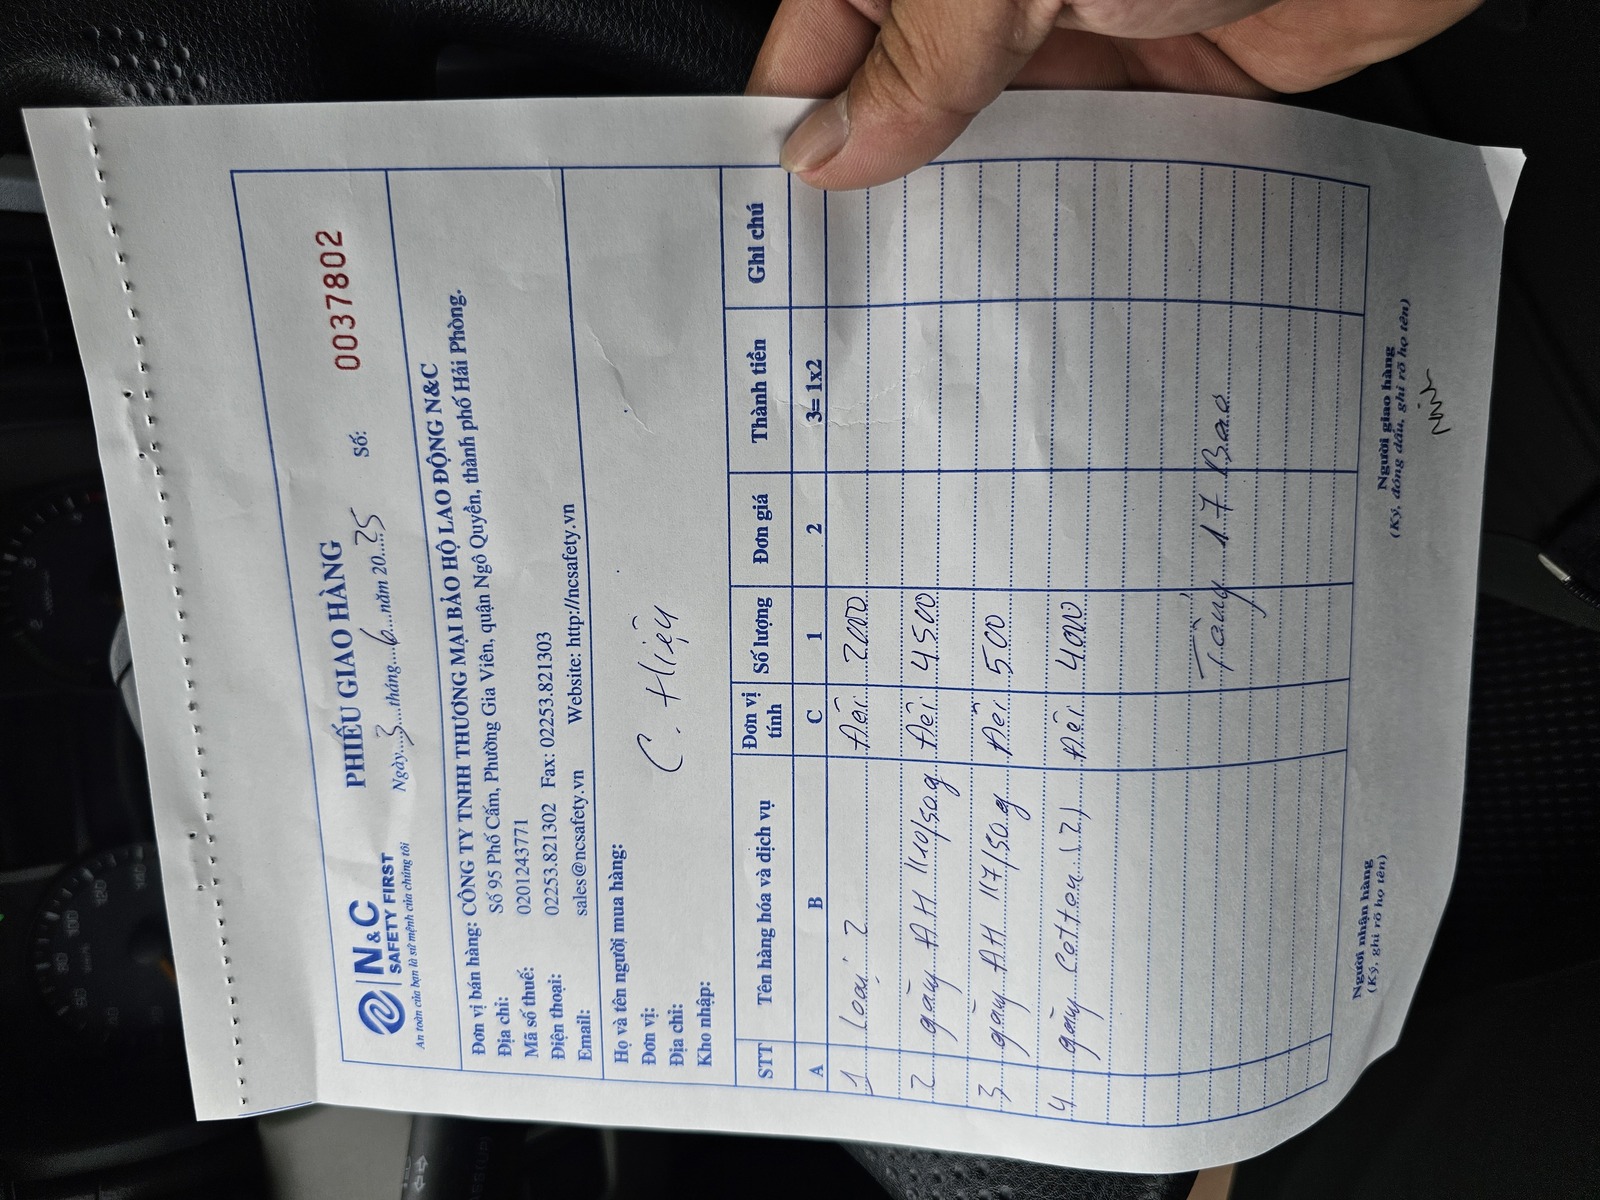 N&C
SAFETY FIRST
An toàn của bạn là sứ mệnh của chúng tôi
PHIẾU GIAO HÀNG
Ngày 3 tháng 6 năm 2025 Số: 0037802
Đơn vị bán hàng: CÔNG TY TNHH THƯƠNG MẠI BẢO HỘ LAO ĐỘNG N&C
Địa chỉ: Số 95 Phố Cấm, Phường Gia Viên, quận Ngô Quyền, thành phố Hải Phòng.
Mã số thuế: 0201243771
Điện thoại: 02253.821302 Fax: 02253.821303
Email: sales@ncsafety.vn Website: http://ncsafety.vn
Họ và tên người mua hàng:
Đơn vị: C. Hiệu
Địa chỉ:
Kho nhập:
STT Tên hàng hóa và dịch vụ Đơn vị tính Số lượng Đơn giá Thành tiền Ghi chú
A B C 1 2 3= 1x2
1 Loại 2 Đôi 2000
2 găng AH 1110/50.g Đôi 4500
3 găng AH 117/50.g Đôi 500
4 găng Cotton Đôi 4000
Tổng 17 Bao
Người nhận hàng
(Ký, ghi rõ họ tên)
Người giao hàng
(Ký, đóng dấu, ghi rõ họ tên)